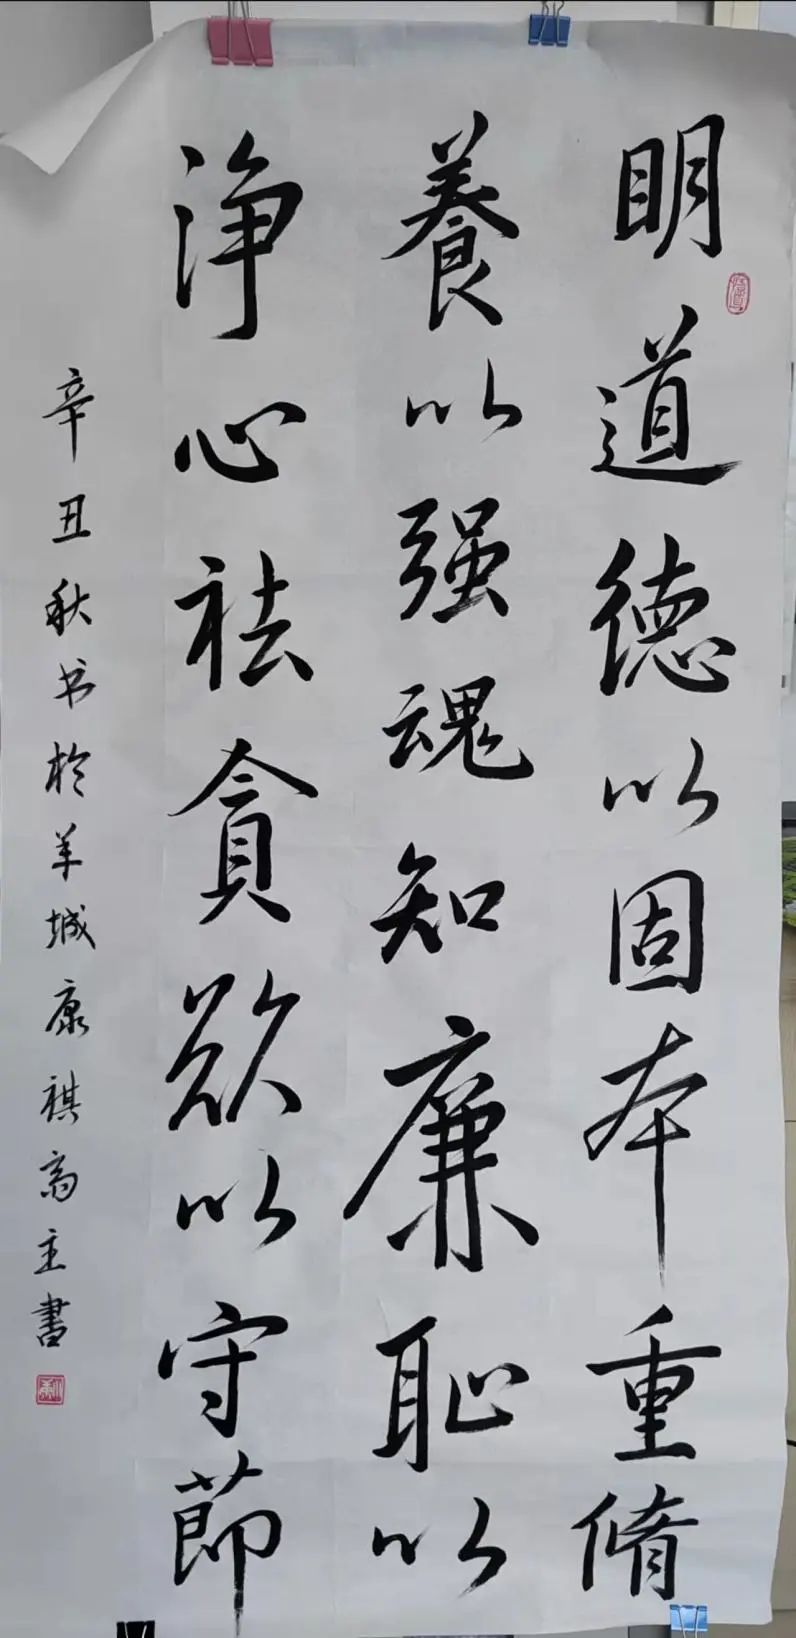 明道德以固本重脩
養以强魂知廉恥以
淨心祛貪欲以守節
辛丑秋书於羊城康祺斋主書